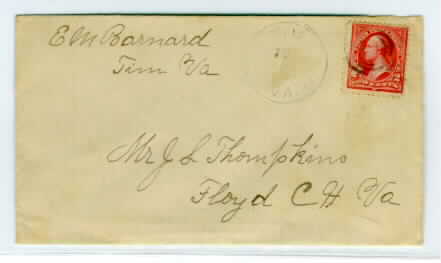 E M Barnard
Tim Va
Mr J L Thompkins
Floyd C H Va